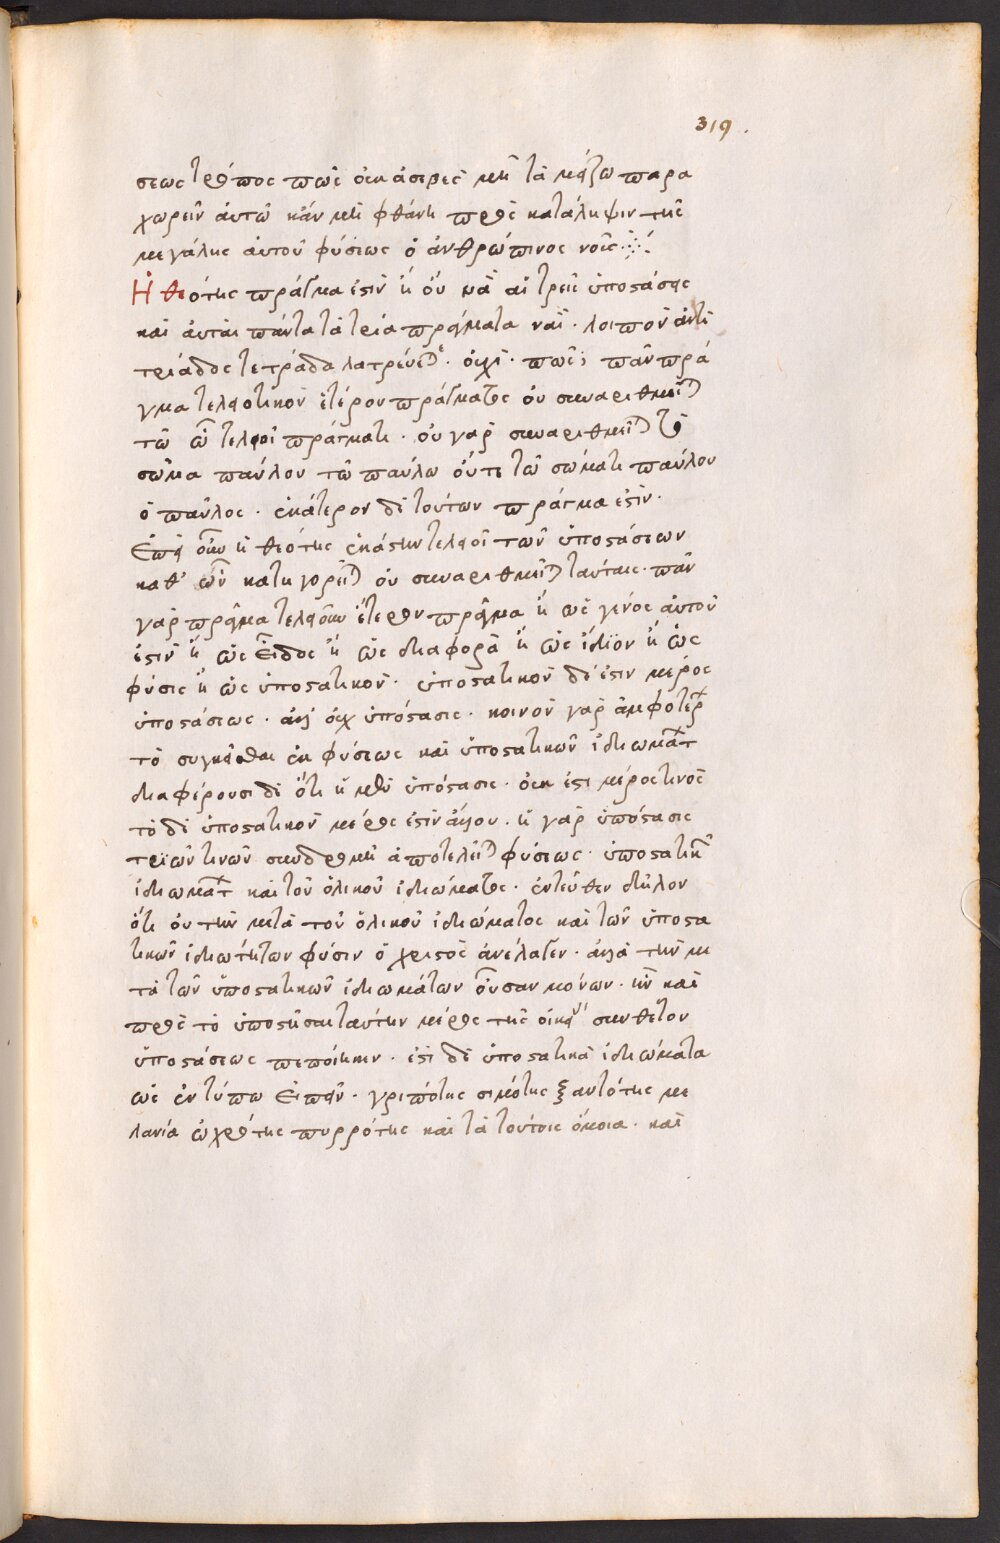 319.
σεως τρόπος πῶς οὐκ ἀσεβὲς μὴ τὰ μείζω παρα
χωρεῖν ἀυτῶ κἂν μὴ φθάνη πρὸς κατάληψιν τῆς
μεγάλης ἀυτοῦ φύσεως ὁ ἀνθρώπινος νοῦς
Η θεότης πρᾶγμα ἐστὶν ἢ ὄυ ναὶ αἱ τρεῖς ὑποστάσεις
καὶ ἀυται πάντα τὰ τρία πράγματα ναὶ. λοιπὸν ἀντὶ
τριάδος τετράδα λατρεύετε. ὀυχὶ. πῶς; πᾶν πρά
γμα τελεστικὸν ἑτέρου πράγματος ὀυ συναριθμεῖται
τῶ ὧ τελεῖ πράγματι. ὀυ γὰρ συναριθμεῖται τὸ
σῶμα παύλου τῶ παύλω ὄυτε τῶ σώματι παύλου
ὁ παῦλος. ἑκάτερον δὲ τούτων πρᾶγμα ἐστὶν.
Ἐπεὶ οὖν ἡ θεότης ἑκάστην τελεῖ τῶν ὑποστάσεων
καθ' ὧν κατηγορεῖται ὀυ συναριθμεῖται ταύταις. πᾶν
γὰρ πρᾶγμα τελοῦν ἕτερον πρᾶγμα ἢ ὡς γένος ἀυτοῦ
ἐστὶν ἢ ὡς εἶδος ἢ ὡς διαφορὰ ἢ ὡς ἴδϊον ἢ ὡς
φύσις ἢ ὡς ὑποστατικὸν. ὑποστατικὸν δέ ἐστιν μέρος
ὑποστάσεως. ἀλλ' ὀυχ ὑπόστασις. κοινὸν γὰρ ἀμφότερα
τὸ συγκεῖσθαι ἐκ φύσεως καὶ ὑποστατικῶν ἰδιωμάτων
διαφέρουσι δὲ ὅτι ἡ μὲν ὑπόστασις. ὀυκ ἔστι μέρος τινὸς
τὸ δὲ ὑποστατικὸν μέρος ἐστὶν ἄλλου. ἡ γὰρ ὑπόστασις
τρϊῶν τινῶν συνδρομῆ ἀποτελεῖται φύσεως. ὑποστατικῶν
ἰδιωμάτων καὶ τοῦ ὁλικοῦ ἰδιώματος. ἐντεῦθεν δῆλον
ὅτι ὀυ τὴν μετὰ τοῦ ὁλικοῦ ἰδιώματος καὶ τῶν ὑποστα
τικῶν ἰδιωτήτων φύσιν ὁ χριστὸς ἀνέλαβεν. ἀλλὰ τὴν με
τὰ τῶν ὑποστατικῶν ἰδιωμάτων οὖσαν μόνων. ἣν καὶ
πρὸς τὸ ὑποστῆσαι ταύτην μέρος τῆς οἰκείας συνθέτου
ὑποστάσεως πεποίηκεν. ἐστὶ δὲ ὑποστατικὰ ἰδιώματα
ὡς ἐν τύπω εἰπεῖν. γριπότης σιμότης ξανθότης με
λανία ὠχρότης πυρρότης καὶ τὰ τούτοις ὅμοια. καὶ